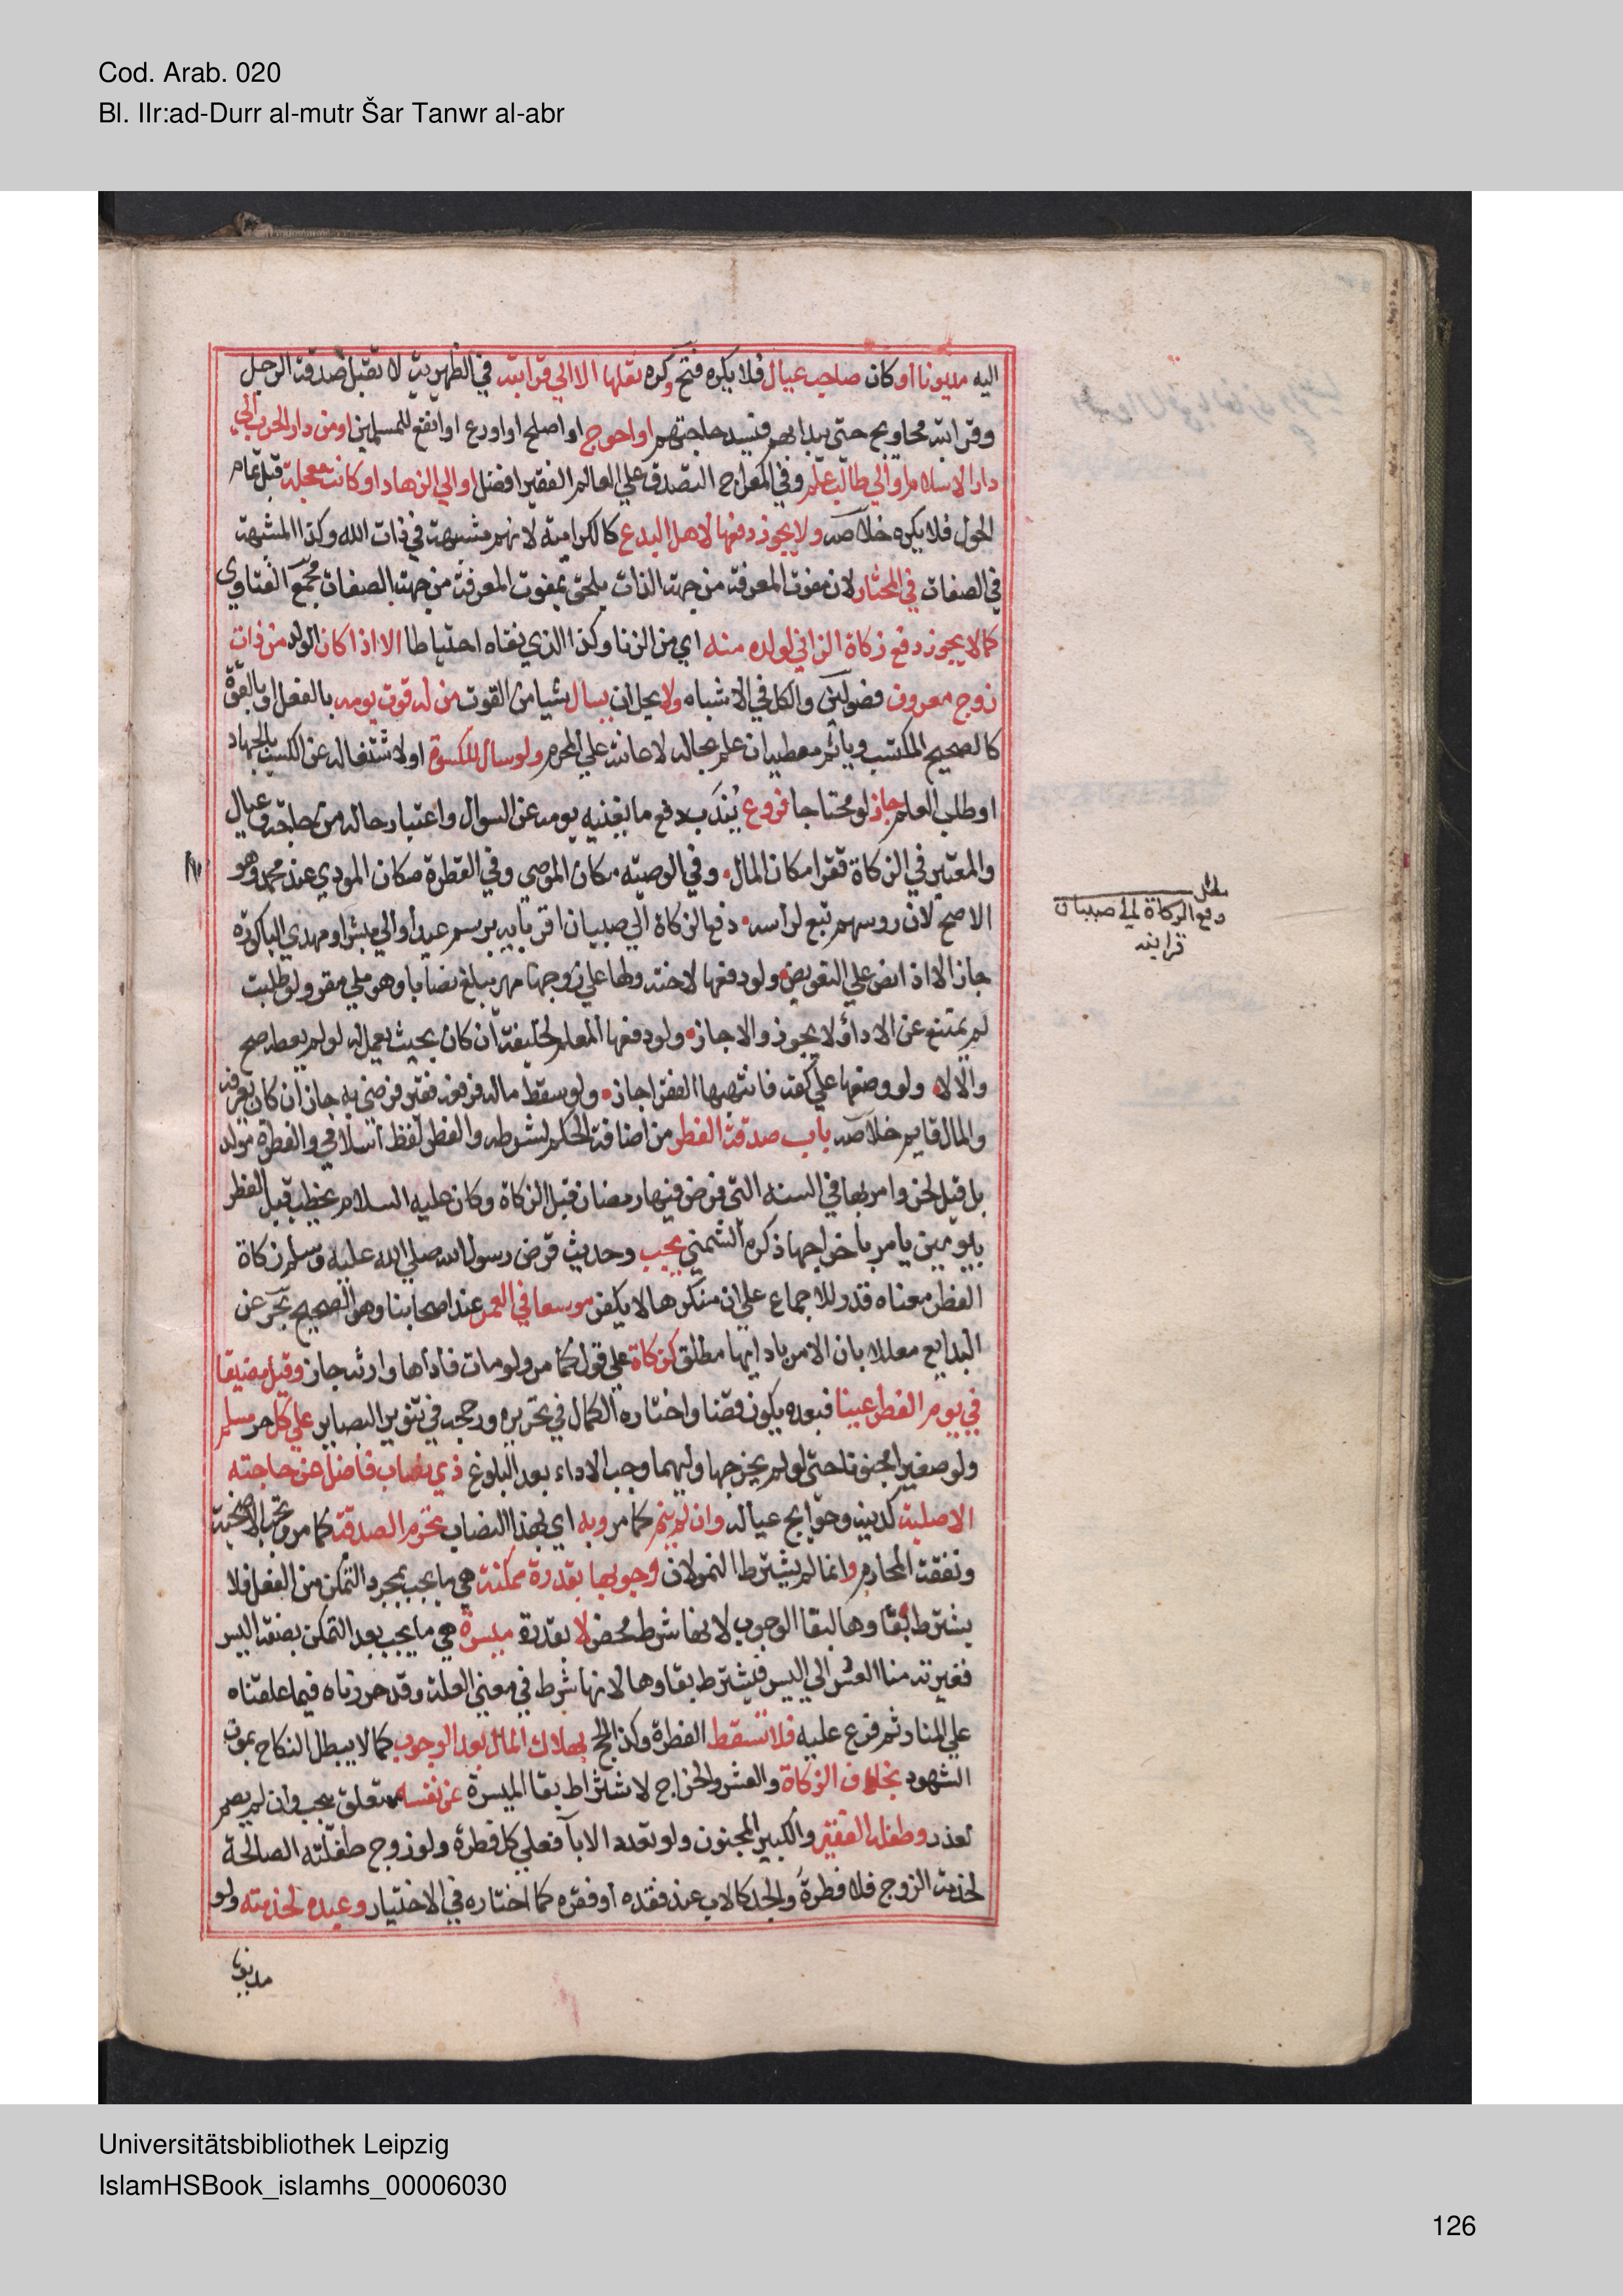 Cod. Arab. 020
Bl. IIr:ad-Durr al-mutr Šar Tanwr al-abr
اليه مديونا او كان صاحب عيال فلا يكره فتح وكره نقلها الا الي قرابته في الظهرية لا تقبل صدقة الرجل
وقرابته محاويج حتى يبدا بهم فيسد حاجتهم او احوج او اصلح او اورع او انفع للمسلمين او من دار الحرب الي
دار الاسلام او الي طالب علم وفي المعراج التصدق علي العالم الفقير افضل او الي الزهاد او كانت معجلة قبل تمام
الحول فلا يكره خلاصه ولا يجوز دفعها لاهل البدع كالكرامية لانهم مشبهة في ذات الله وكذا المشبهة
في الصفات في المختار لان مفوت المعرفة من جهة الذات يلحق بمفوت المعرفة من جهة الصفات مجمع الفتاوي
كما لا يجوز دفع زكاة الزاني لولده منه اي من الزنا وكذا الذي نفاه احتياطا الا اذا كان الولد من ذات
زوج معروف فصولين والكل في الاشباه ولا يحل ان يسال شيا من القوت من له قوت يومه بالفعل او بالقوة
كالصحيح المكتسب وياثم معطيه ان علم بحاله لاعانته علي المحرم ولو سال للكسوة او لاشتغاله عن الكسب بالجهاد
او طلب العلم جاز لو محتاجا فروع يُندَب دفع ما يغنيه يومه عن السوال واعتبار حاله من حاجة وعيال
والمعتبر في الزكاة فقرا مكان المال وفي الوصيه مكان الموصى وفي الفطرة مكان المودي عند محمد وهو
الاصح لان روسهم تبع لراسه دفع الزكاة الي صبيان اقربايه برسم عيد او الي مبشر او مهدي الباكورة
جاز الا اذا نص علي التعويض ولو دفعها لاخته ولها علي زوجها مهر يبلغ نصابا وهو ملي مقر ولو طلبت
لم يمتنع عن الادا لا يجوز والا جاز ولو دفعها المعلم لخليفته ان كان بحيث يعمل له لو لم يعطه صح
والا لا ولو وضعها علي كفه فانتهبها الفقرا جاز ولو سقط ماله فرفعه فقير فرضي به جاز ان كان يعرفه
والمال قايم خلاصه باب صدقة الفطر من اضافة الحكم لشرطه والفطر لفظ اسلامي والفطرة مولد
بل قيل لحن وامر بها في السنة التي فرض فيها رمضان قبل الزكاة وكان عليه السلام يخطب قبل الفطر
بيومين يامر باخراجها ذكره الشمني يجب وحديث فرض رسول الله صلي الله عليه وسلم زكاة
الفطر معناه قدر للاجماع علي ان منكرها لا يكفر موسعا في العمر عند اصحابنا وهو الصحيح بحر عن
البدايع معللا بان الامر بادايها مطلق كزكاة علي قول كما مر ولو مات فاداها وارثه جاز وقيل مضيقا
في يوم الفطر عينا فبعده يكون قضا واختاره الكمال في تحريره ورجحه في تنوير البصاير علي كل حر مسلم
ولو صغيرا مجنونا حتى لو لم يخرجها وليهما وجب الاداء بعد البلوغ ذي نصاب فاضل عن حاجته
الاصلية كدينه وحوايج عياله وان لم ينم كما مر وبه اي بهذا النصاب تحرم الصدقة كما مر وتجب الاضحية
ونفقة المحارم وانما لم يشترط النمو لان وجوبها بقدرة ممكنة هي ما يجب بمجرد التمكن من الفعل فلا
يشترط بقاوها لبقا الوجوب لانها شرط محض لا بقدرة ميسرة هي ما يجب بعد التمكن بصفة اليسر
فغيرته من العسر الي اليسر فيشترط بقاوها لانها شرط في معني العلة وقد حررناه فيما علقناه
علي المنار ثم فرع عليه فلا تسقط الفطرة وكذا الحج بهلاك المال بعد الوجوب كما لا يبطل النكاح بموت
الشهود بخلاف الزكاة والعشر والخراج لاشتراط بقا الميسرة عن نفسه متعلق بيجب وان لم يصم
لعذر وطفله الفقير والكبير المجنون ولو تعدد الابآ فعلي كل فطرة ولو زوج طفلته الصالحة
لخدمة الزوج فلا فطرة والجد كالاب عند فقده او فقره كما اختاره في الاختيار وعبده لخدمته ولو
مديونا
مطلب
دفع الزكاة الي صبيان
قرابته
Universitätsbibliothek Leipzig
IslamHSBook_islamhs_00006030
126